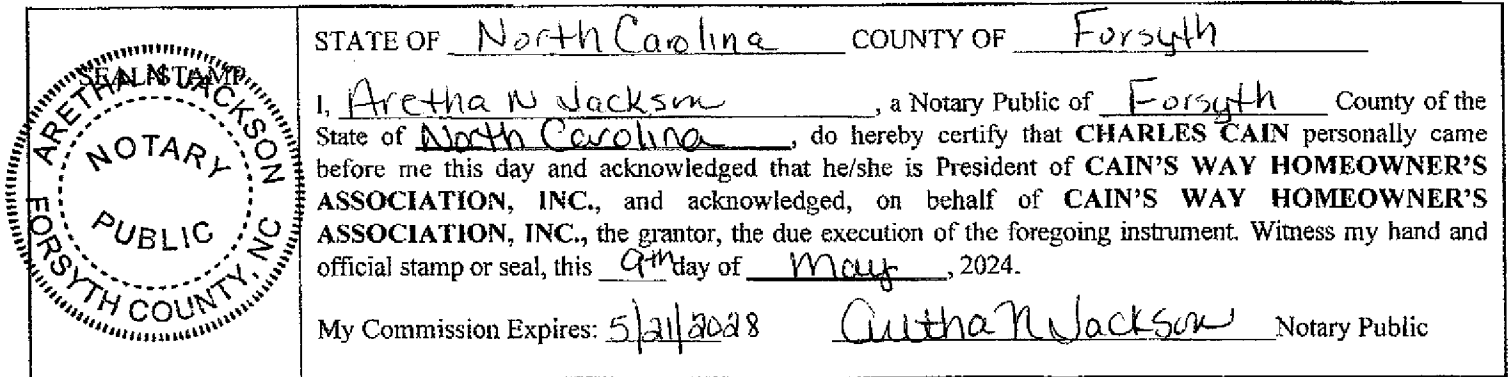 SEAL/STAMP
ARETHA N JACKSON
NOTARY
PUBLIC
FORSYTH COUNTY, NC
STATE OF North Carolina COUNTY OF Forsyth
I, Aretha N Jackson, a Notary Public of Forsyth County of the
State of North Carolina, do hereby certify that CHARLES CAIN personally came
before me this day and acknowledged that he/she is President of CAIN'S WAY HOMEOWNER'S
ASSOCIATION, INC., and acknowledged, on behalf of CAIN'S WAY HOMEOWNER'S
ASSOCIATION, INC., the grantor, the due execution of the foregoing instrument. Witness my hand and
official stamp or seal, this 9th day of May, 2024.
My Commission Expires: 5/21/2028 Aretha N Jackson Notary Public